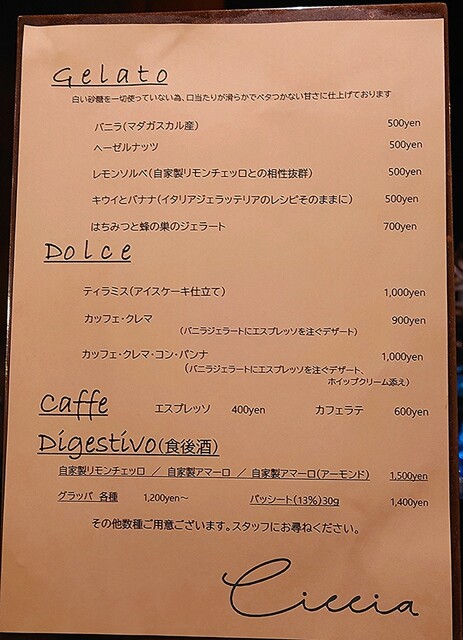 Gelato
白い砂糖を一切使っていない為、口当たりが滑らかでベタつかない甘さに仕上げております
バニラ(マダガスカル産) 500yen
ヘーゼルナッツ 500yen
レモンソルベ(自家製リモンチェッロとの相性抜群) 500yen
キウイとバナナ(イタリアジェラッテリアのレシピそのままに) 500yen
はちみつと蜂の巣のジェラート 700yen
Dolce
ティラミス(アイスケーキ仕立て) 1,000yen
カッフェ・クレマ 900yen
(バニラジェラートにエスプレッソを注ぐデザート)
カッフェ・クレマ・コン・パンナ 1,000yen
(バニラジェラートにエスプレッソを注ぐデザート、
ホイップクリーム添え)
Caffe エスプレッソ 400yen カフェラテ 600yen
Digestivo(食後酒)
自家製リモンチェッロ / 自家製アマーロ / 自家製アマーロ(アーモンド) 1,500yen
グラッパ 各種 1,200yen~ パッシート(13%)30g 1,400yen
その他数種ご用意ございます。スタッフにお尋ねください。
Ciccia